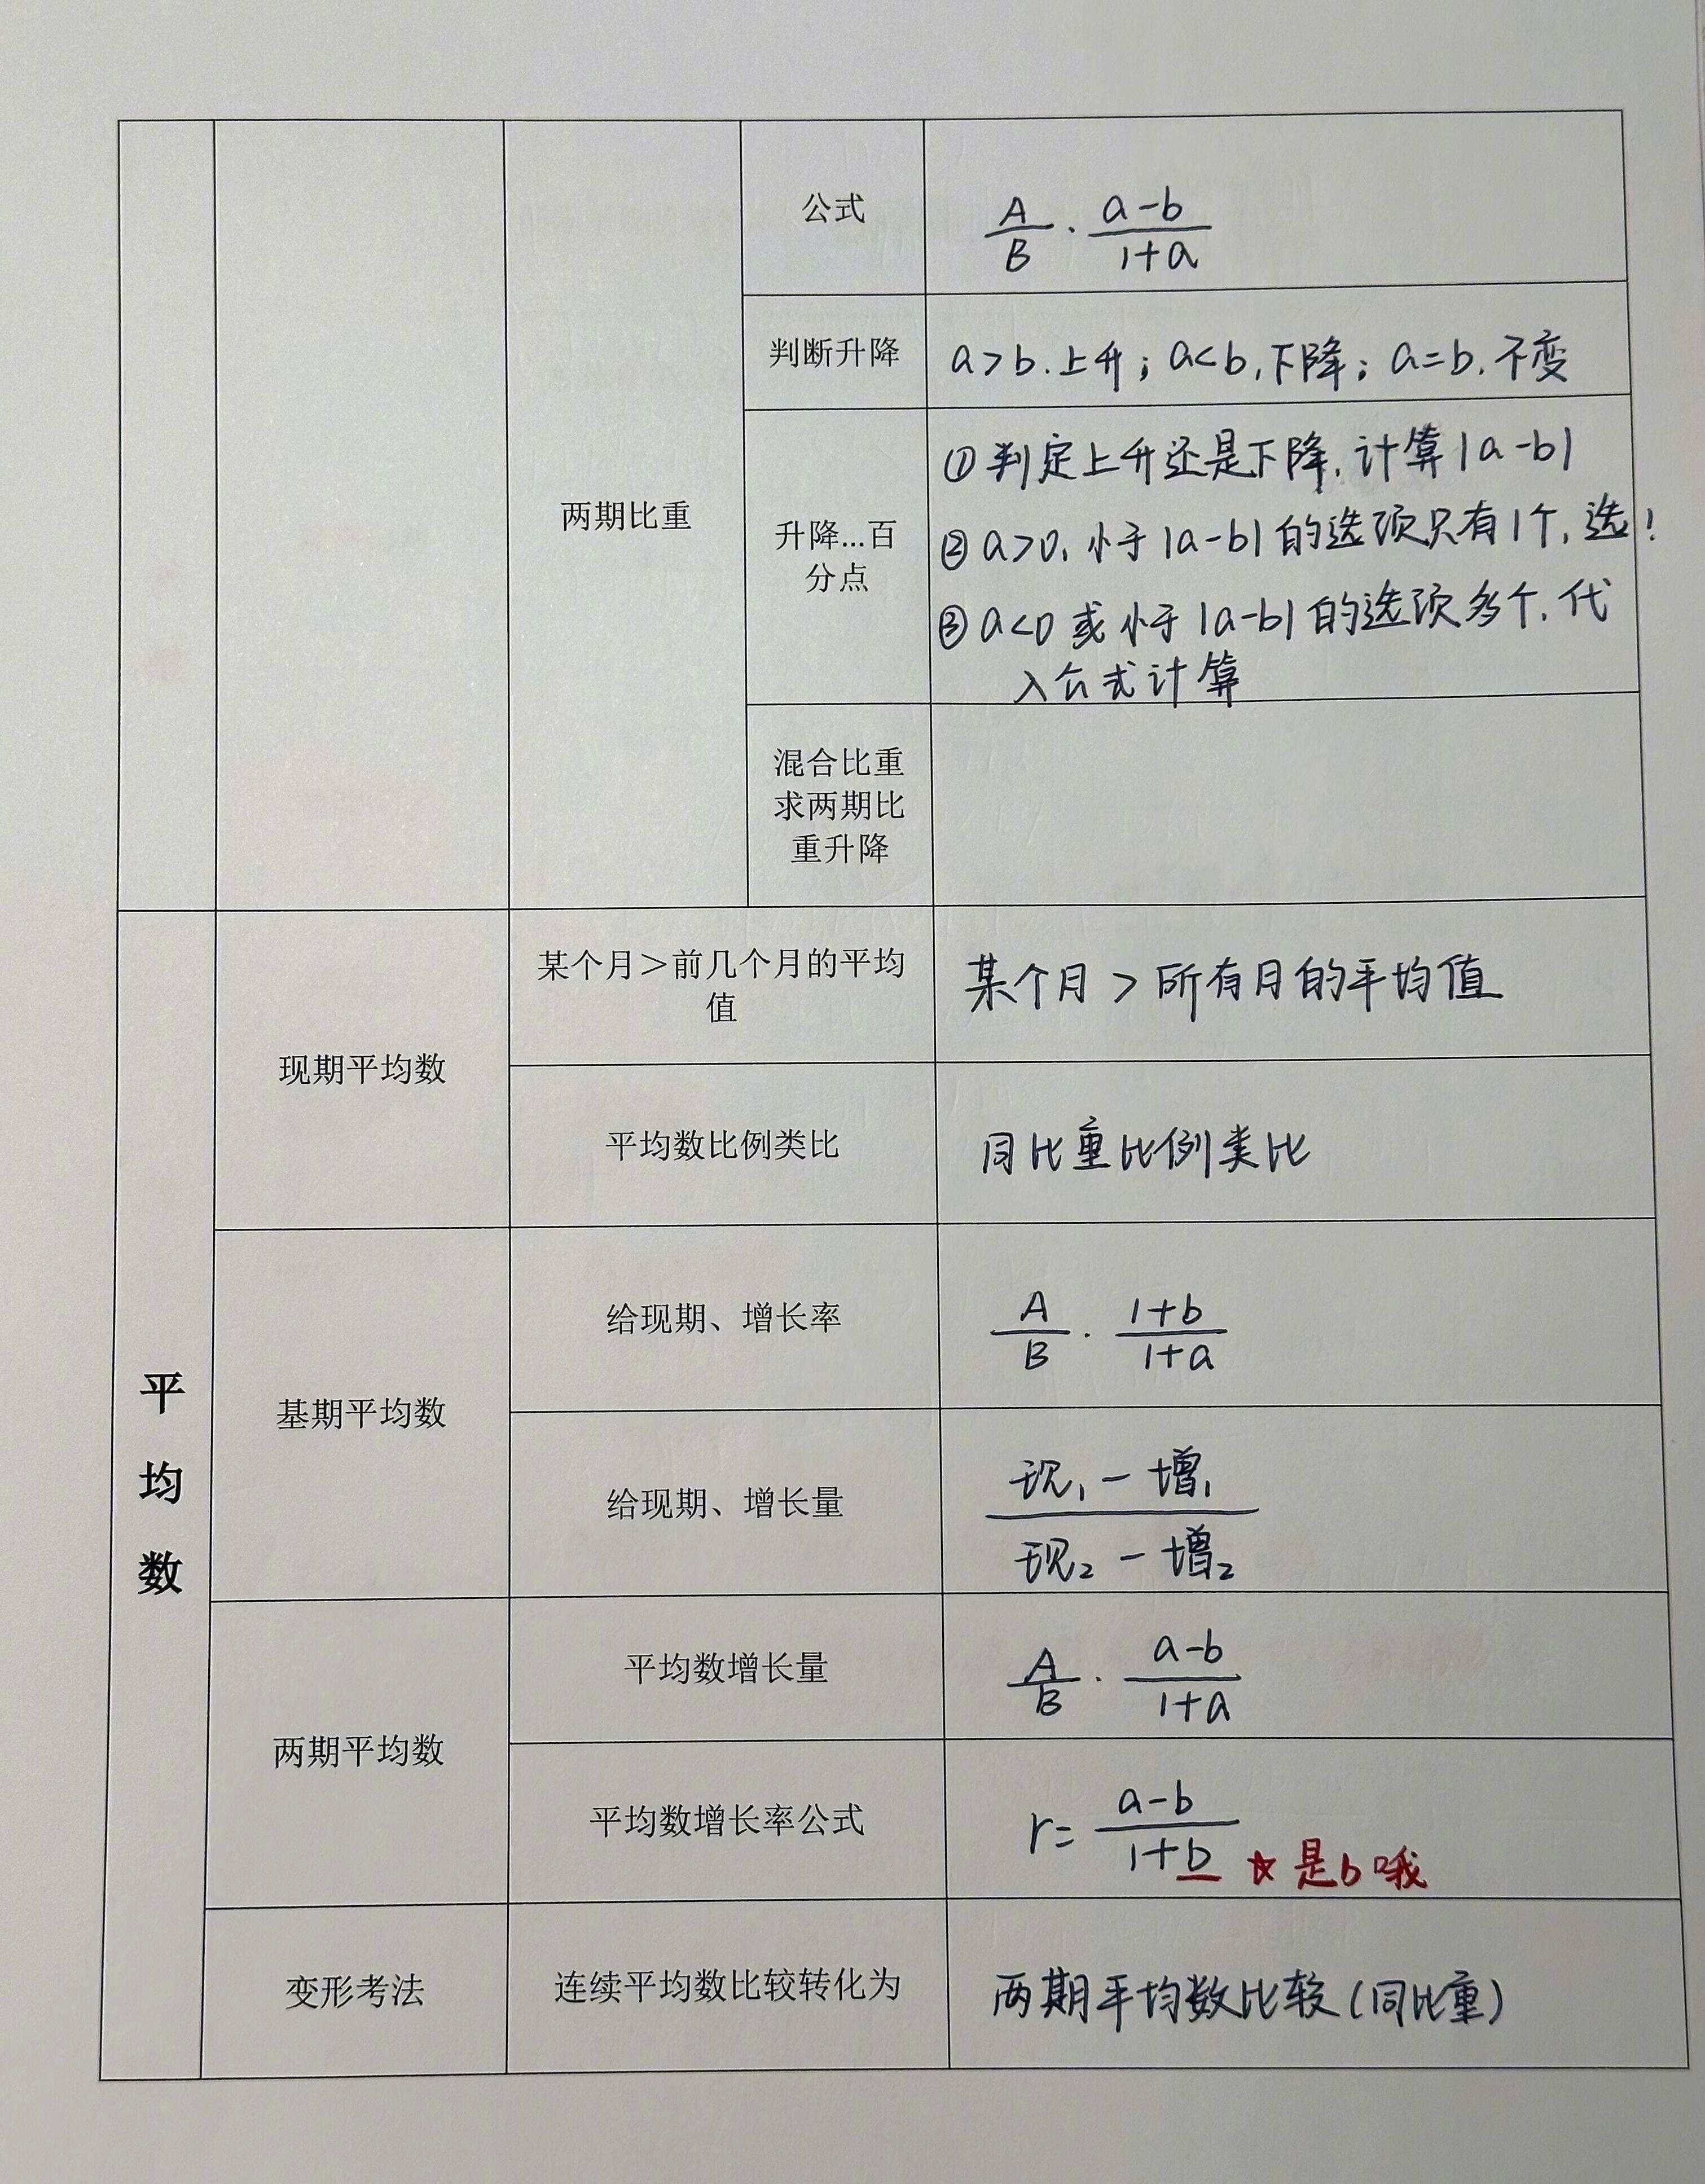 公式
A/B · (a-b)/(1+a)
判断升降
a>b.上升；a<b,下降；a=b.不变
两期比重
升降...百
分点
①判定上升还是下降,计算|a-b|
②a>0,小于|a-b|的选项只有1个,选!
③a<0或小于|a-b|的选项多个,代
入公式计算
混合比重
求两期比
重升降
平
均
数
现期平均数
某个月＞前几个月的平均
值
某个月 > 所有月的平均值
平均数比例类比
同比重比例类比
基期平均数
给现期、增长率
A/B · (1+b)/(1+a)
给现期、增长量
现₁-增₁
现₂-增₂
两期平均数
平均数增长量
A/B · (a-b)/(1+a)
平均数增长率公式
r= (a-b)/(1+b) ☆是b哦
变形考法
连续平均数比较转化为
两期平均数比较(同比重)